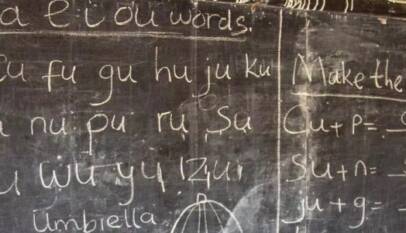 a e i o u words.
cu fu gu hu ju ku
nu pu ru su
wu yu zu
Umbrella
Make the
Cu+p=
Su+n=
ju+g=